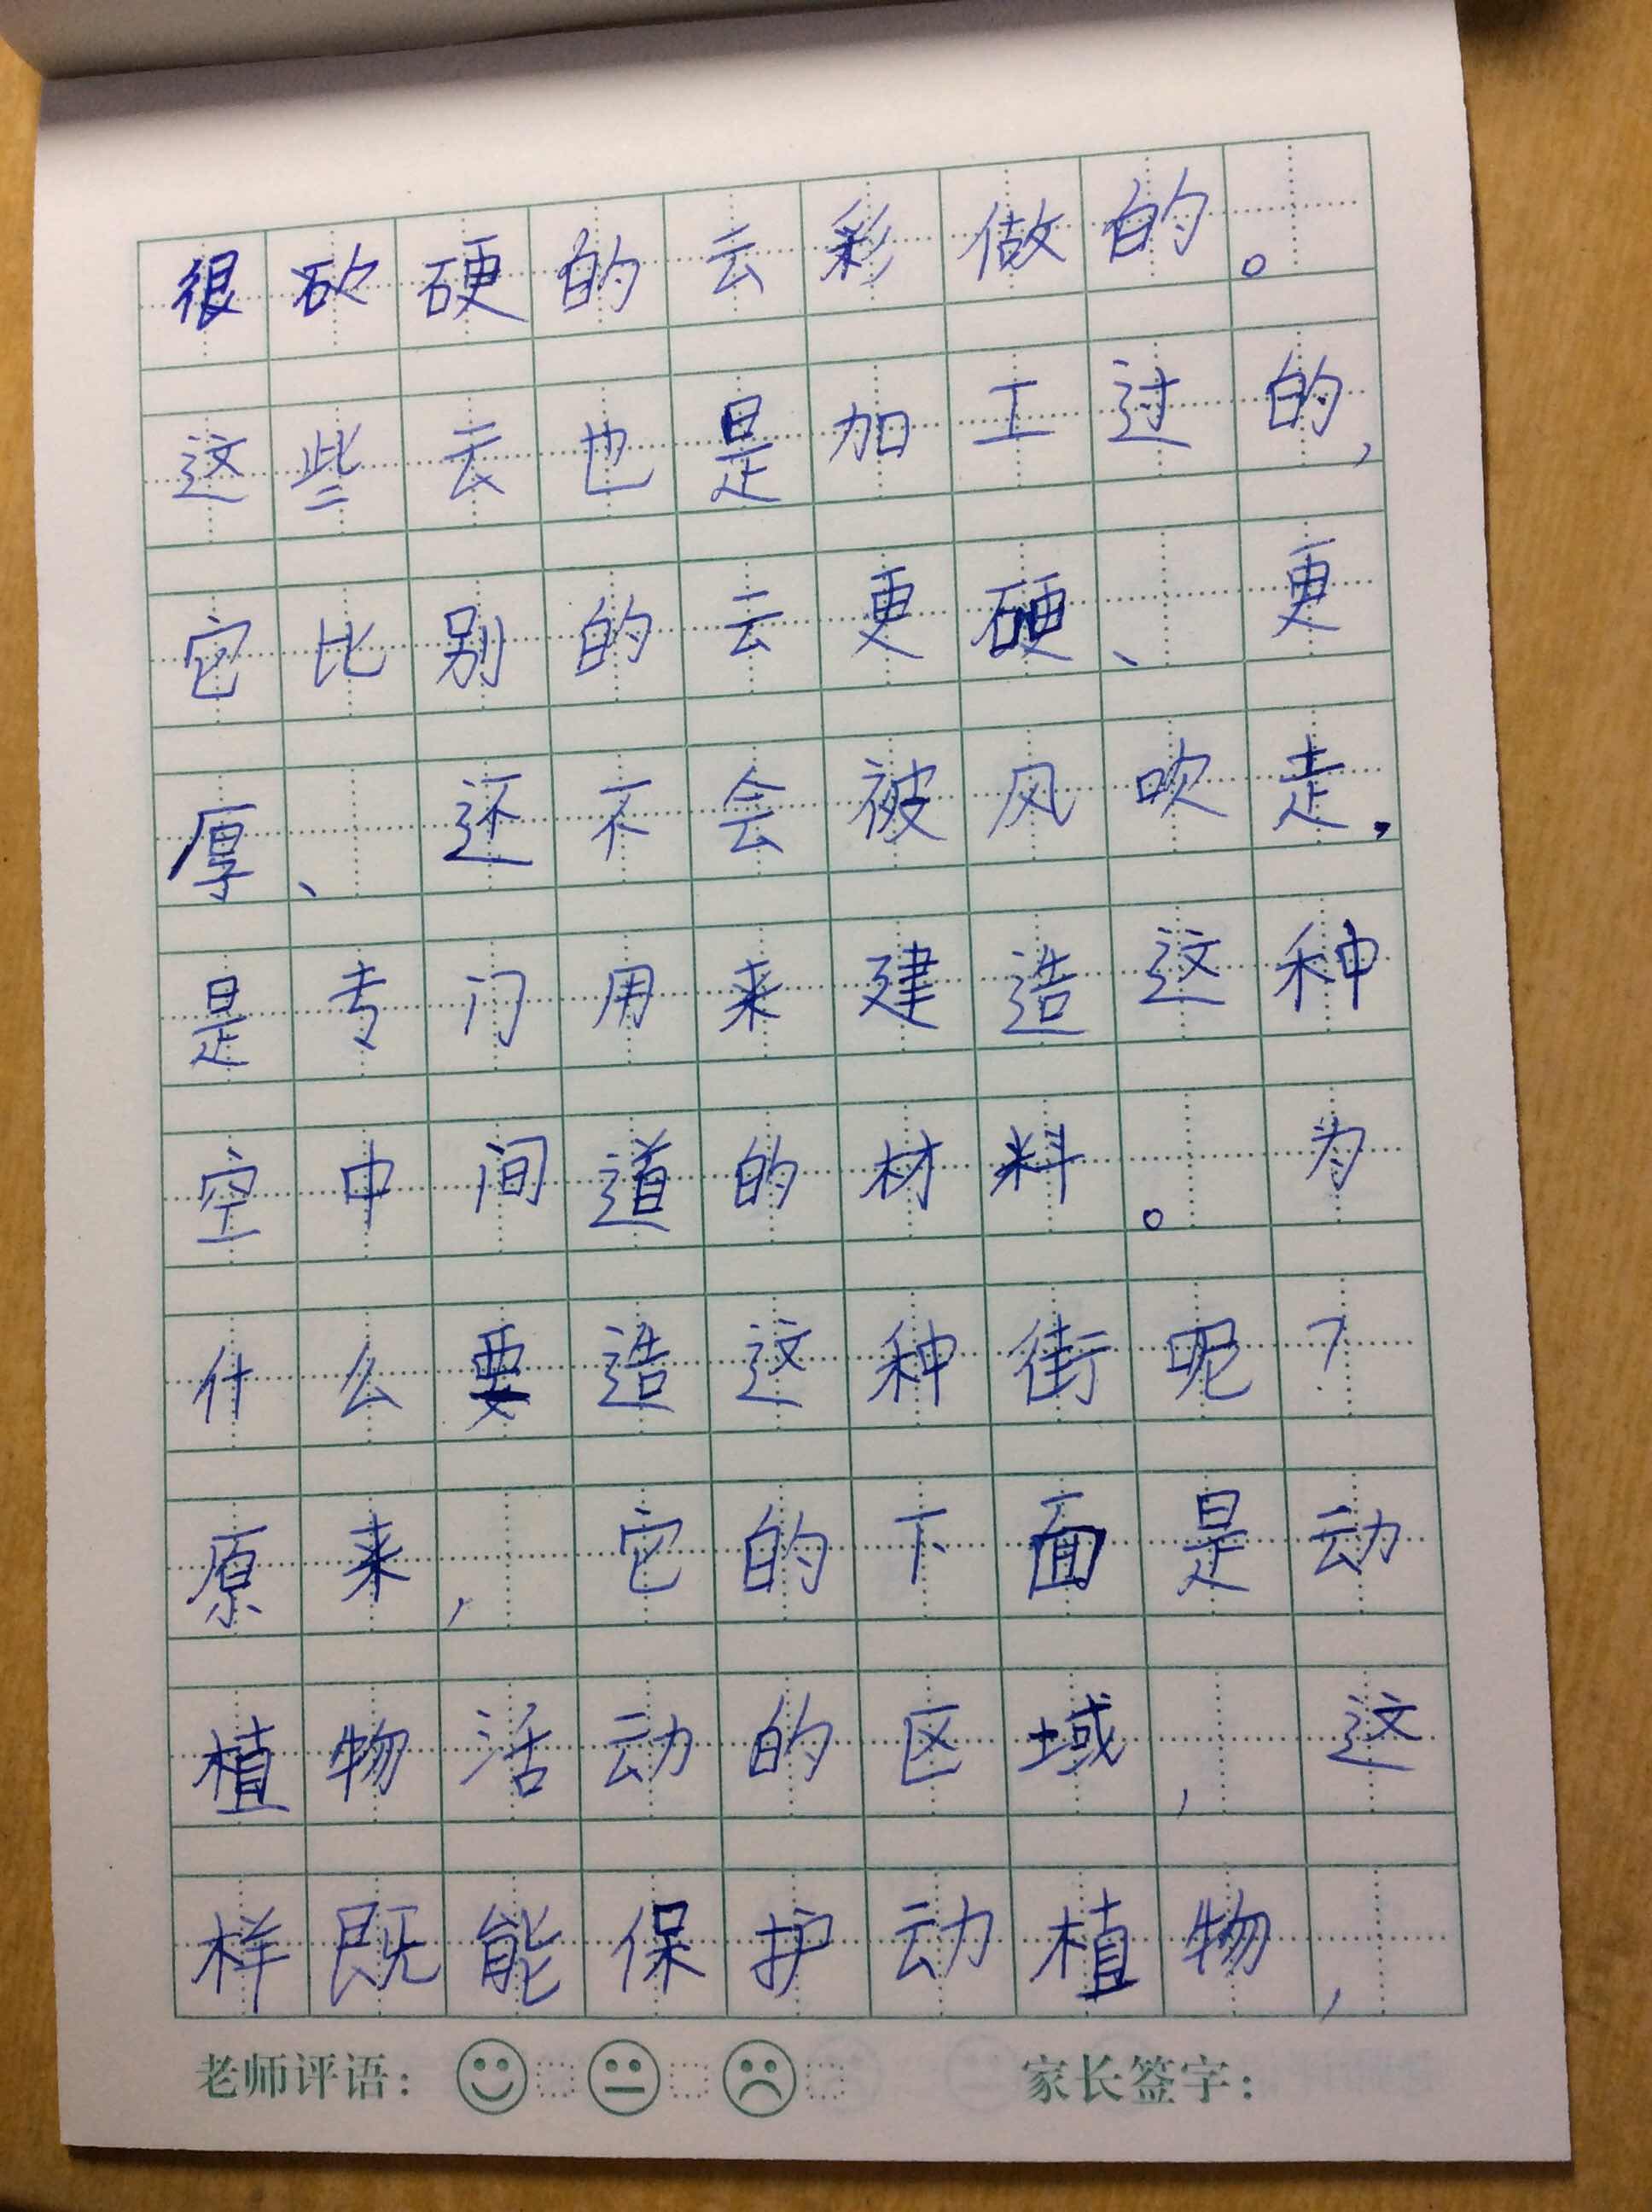 很砍硬的云彩做的。
这些云也是加工过的,
它比别的云更硬、更
厚、还不会被风吹走.
是专门用来建造这种
空中间道的材料。为
什么要造这种街呢?
原来,它的下面是动
植物活动的区域,这
样既能保护动植物,
老师评语: 家长签字: